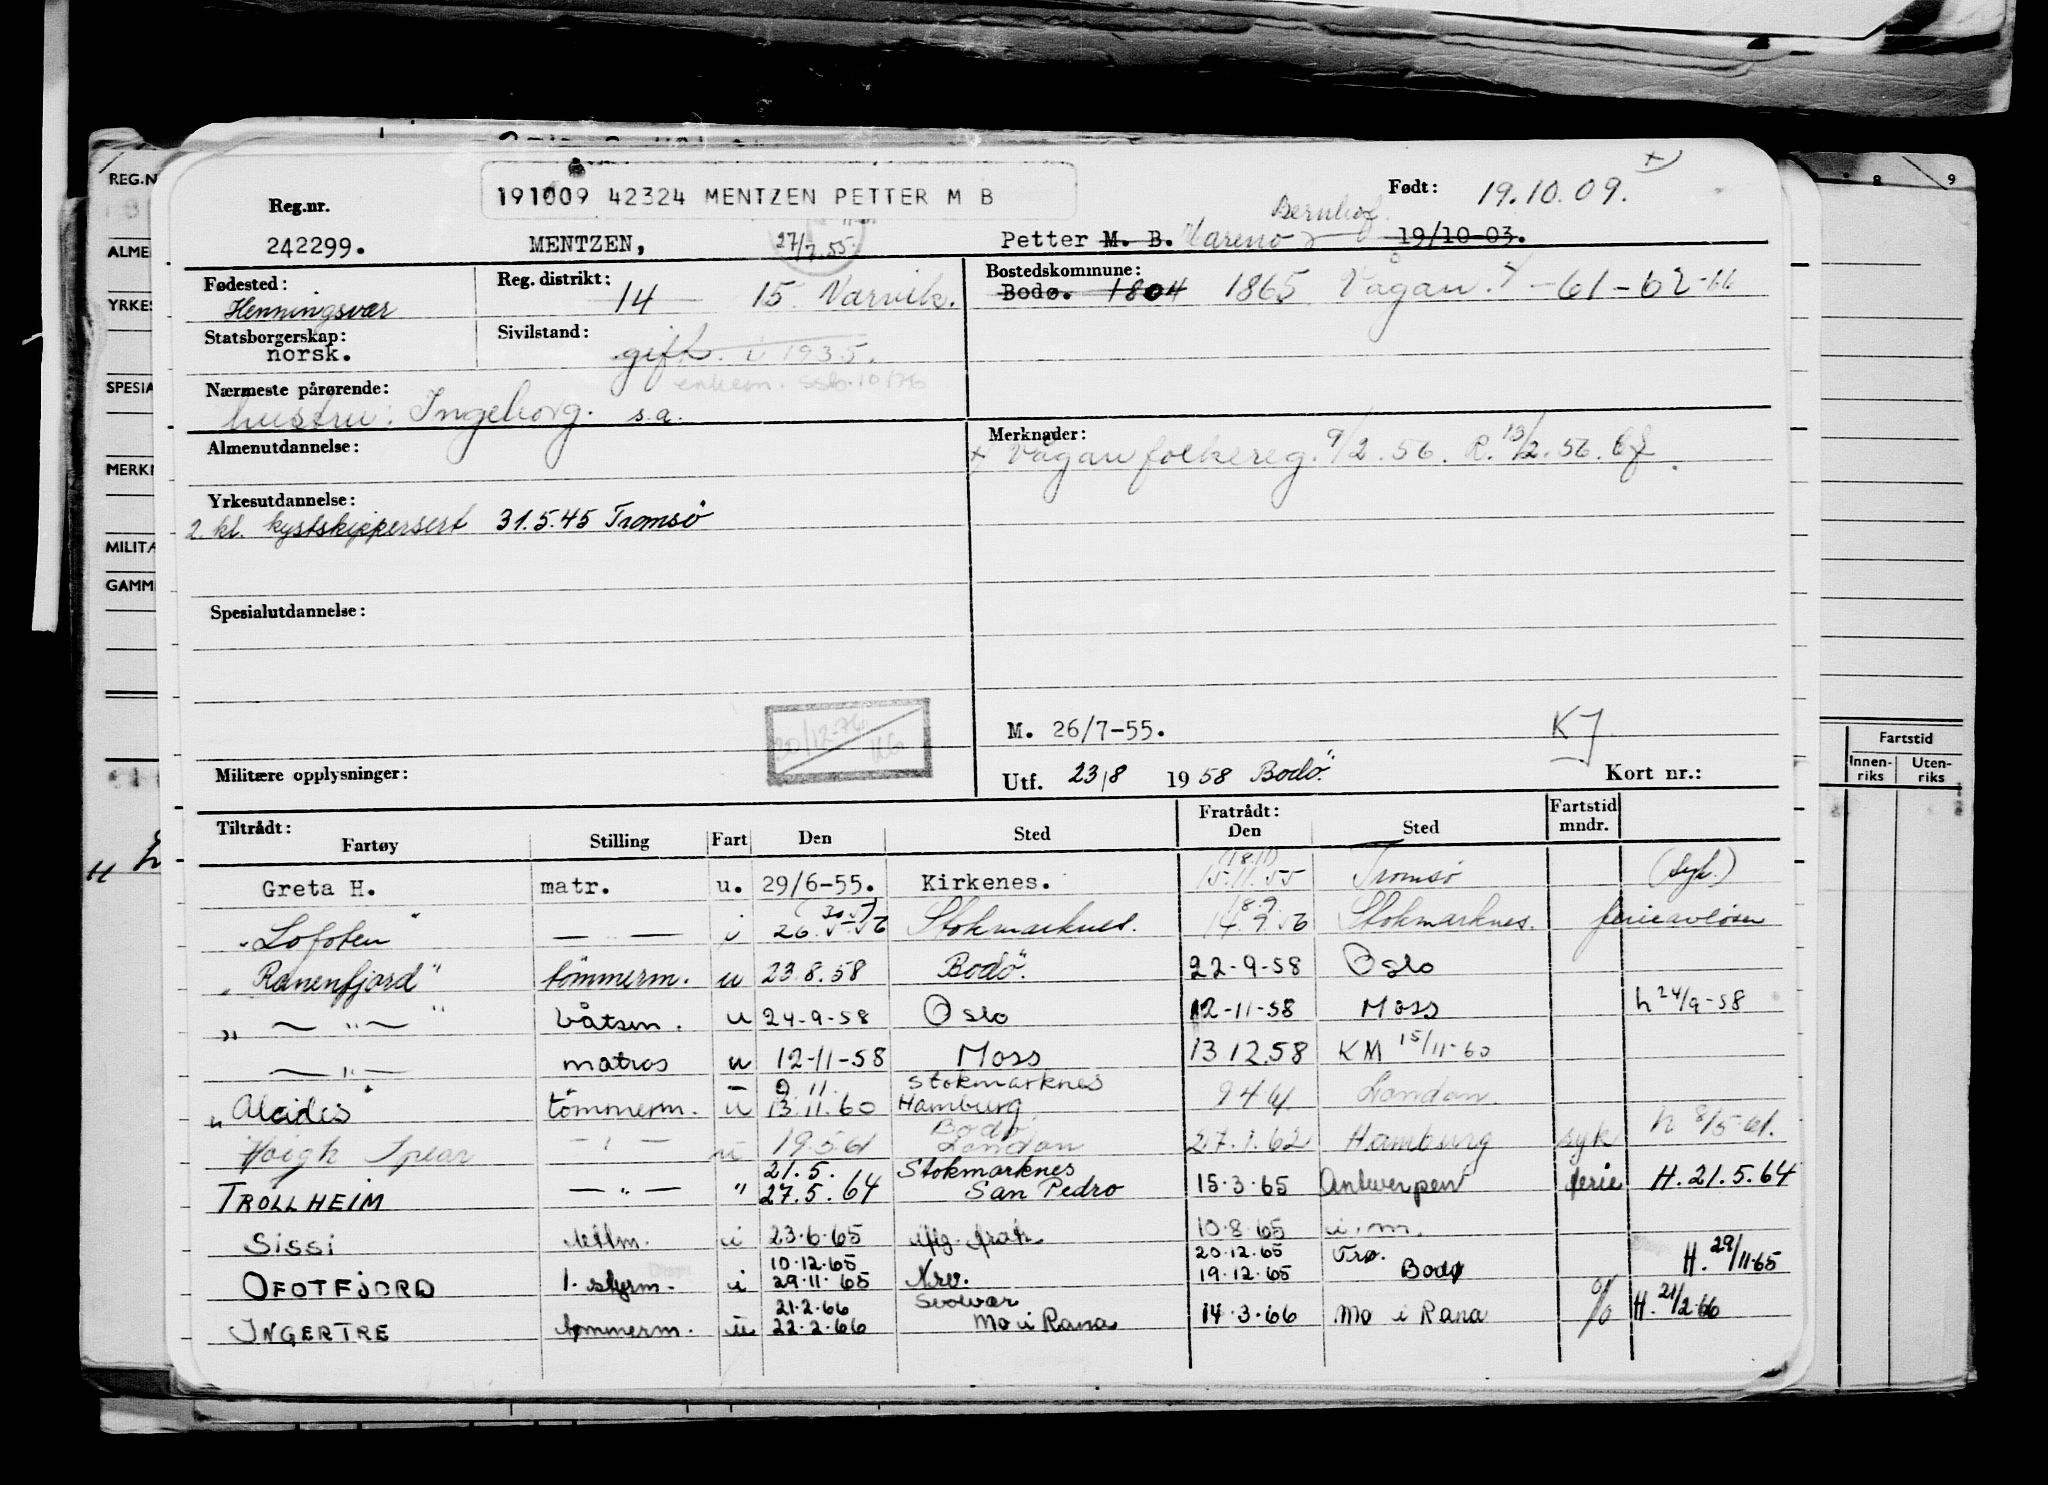 REG.N
ALME
YRKES
SPESIA
MERK
MILITÆ
GAMM
8 9
Fartstid
Innen-
riks
Uten-
riks
191009 42324 MENTZEN PETTER M B
Født: 19.10.09.
Reg.nr.
242299. MENTZEN, 27/7.55. Petter M. B. Mareno Bernhof 19/10-03.
Fødested: Henningsvær
Reg. distrikt: 14 — 15 Narvik.
Bostedskommune: Bodø. 1804 1865 Vågan. - 61 - 62 - 66
Statsborgerskap: norsk.
Sivilstand: gift. i 1935.
enkem. SSB. 10/76
Nærmeste pårørende: hustru: Ingeborg. s.a.
Almenutdannelse:
Merknader: x Vågan folkereg. 9/2.56. R. 13/2.56.
Yrkesutdannelse:
2. kl. kystskippersert 31.5.45 Tromsö
Spesialutdannelse:
20/12-76
M. 26/7-55. KJ
Militære opplysninger:
Utf. 23/8 1958 Bodö. Kort nr.:
Tiltrådt: Fratrådt: Fartstid mndr.
Fartøy Stilling Fart Den Sted Den Sted
Greta H. matr. u. 29/6-55. Kirkenes. (18.11) 15.11.55 Tromsø (syk.)
"Lofoten" — " — i (30.5) 26.5.56 Stokmarknes. 18.9. 14.9.56 Stokmarknes. ferieavløser
"Ranenfjord" tömmerm. u 23.8.58 Bodö. 22-9-58 Oslo
" — " — " båtsm. u 24-9-58 Oslo 12-11-58 Moss h 24/9-58
— " — matros u 12-11-58 Moss 13.12.58 KM 15/11-60
"Alcides" tömmerm. u 9.11. 13.11.60 Stokmarknes Hamburg 9 4 61. London.
Høigh Spear — " — u 19.5.61 Bodø London 27.1.62 Hamburg syk h 8/5-61.
TROLLHEIM — " — " 21.5. 27.5.64 Stokmarknes San Pedro 15.3.65 Antwerpen ferie H. 21.5.64
SISSI i 23.6.65 10.8.65 i.m.
OFOTFJORD 1. styrm. i 10.12.65 29.11.65 Nrv. 20.12.65 19.12.65 Trø. Bodø H. 29/11.65
INGERTRE tømmerm. u 21.2.66 22.2.66 Svolvær Mo i Rana 14.3.66 Mo i Rana % H. 21/2.66